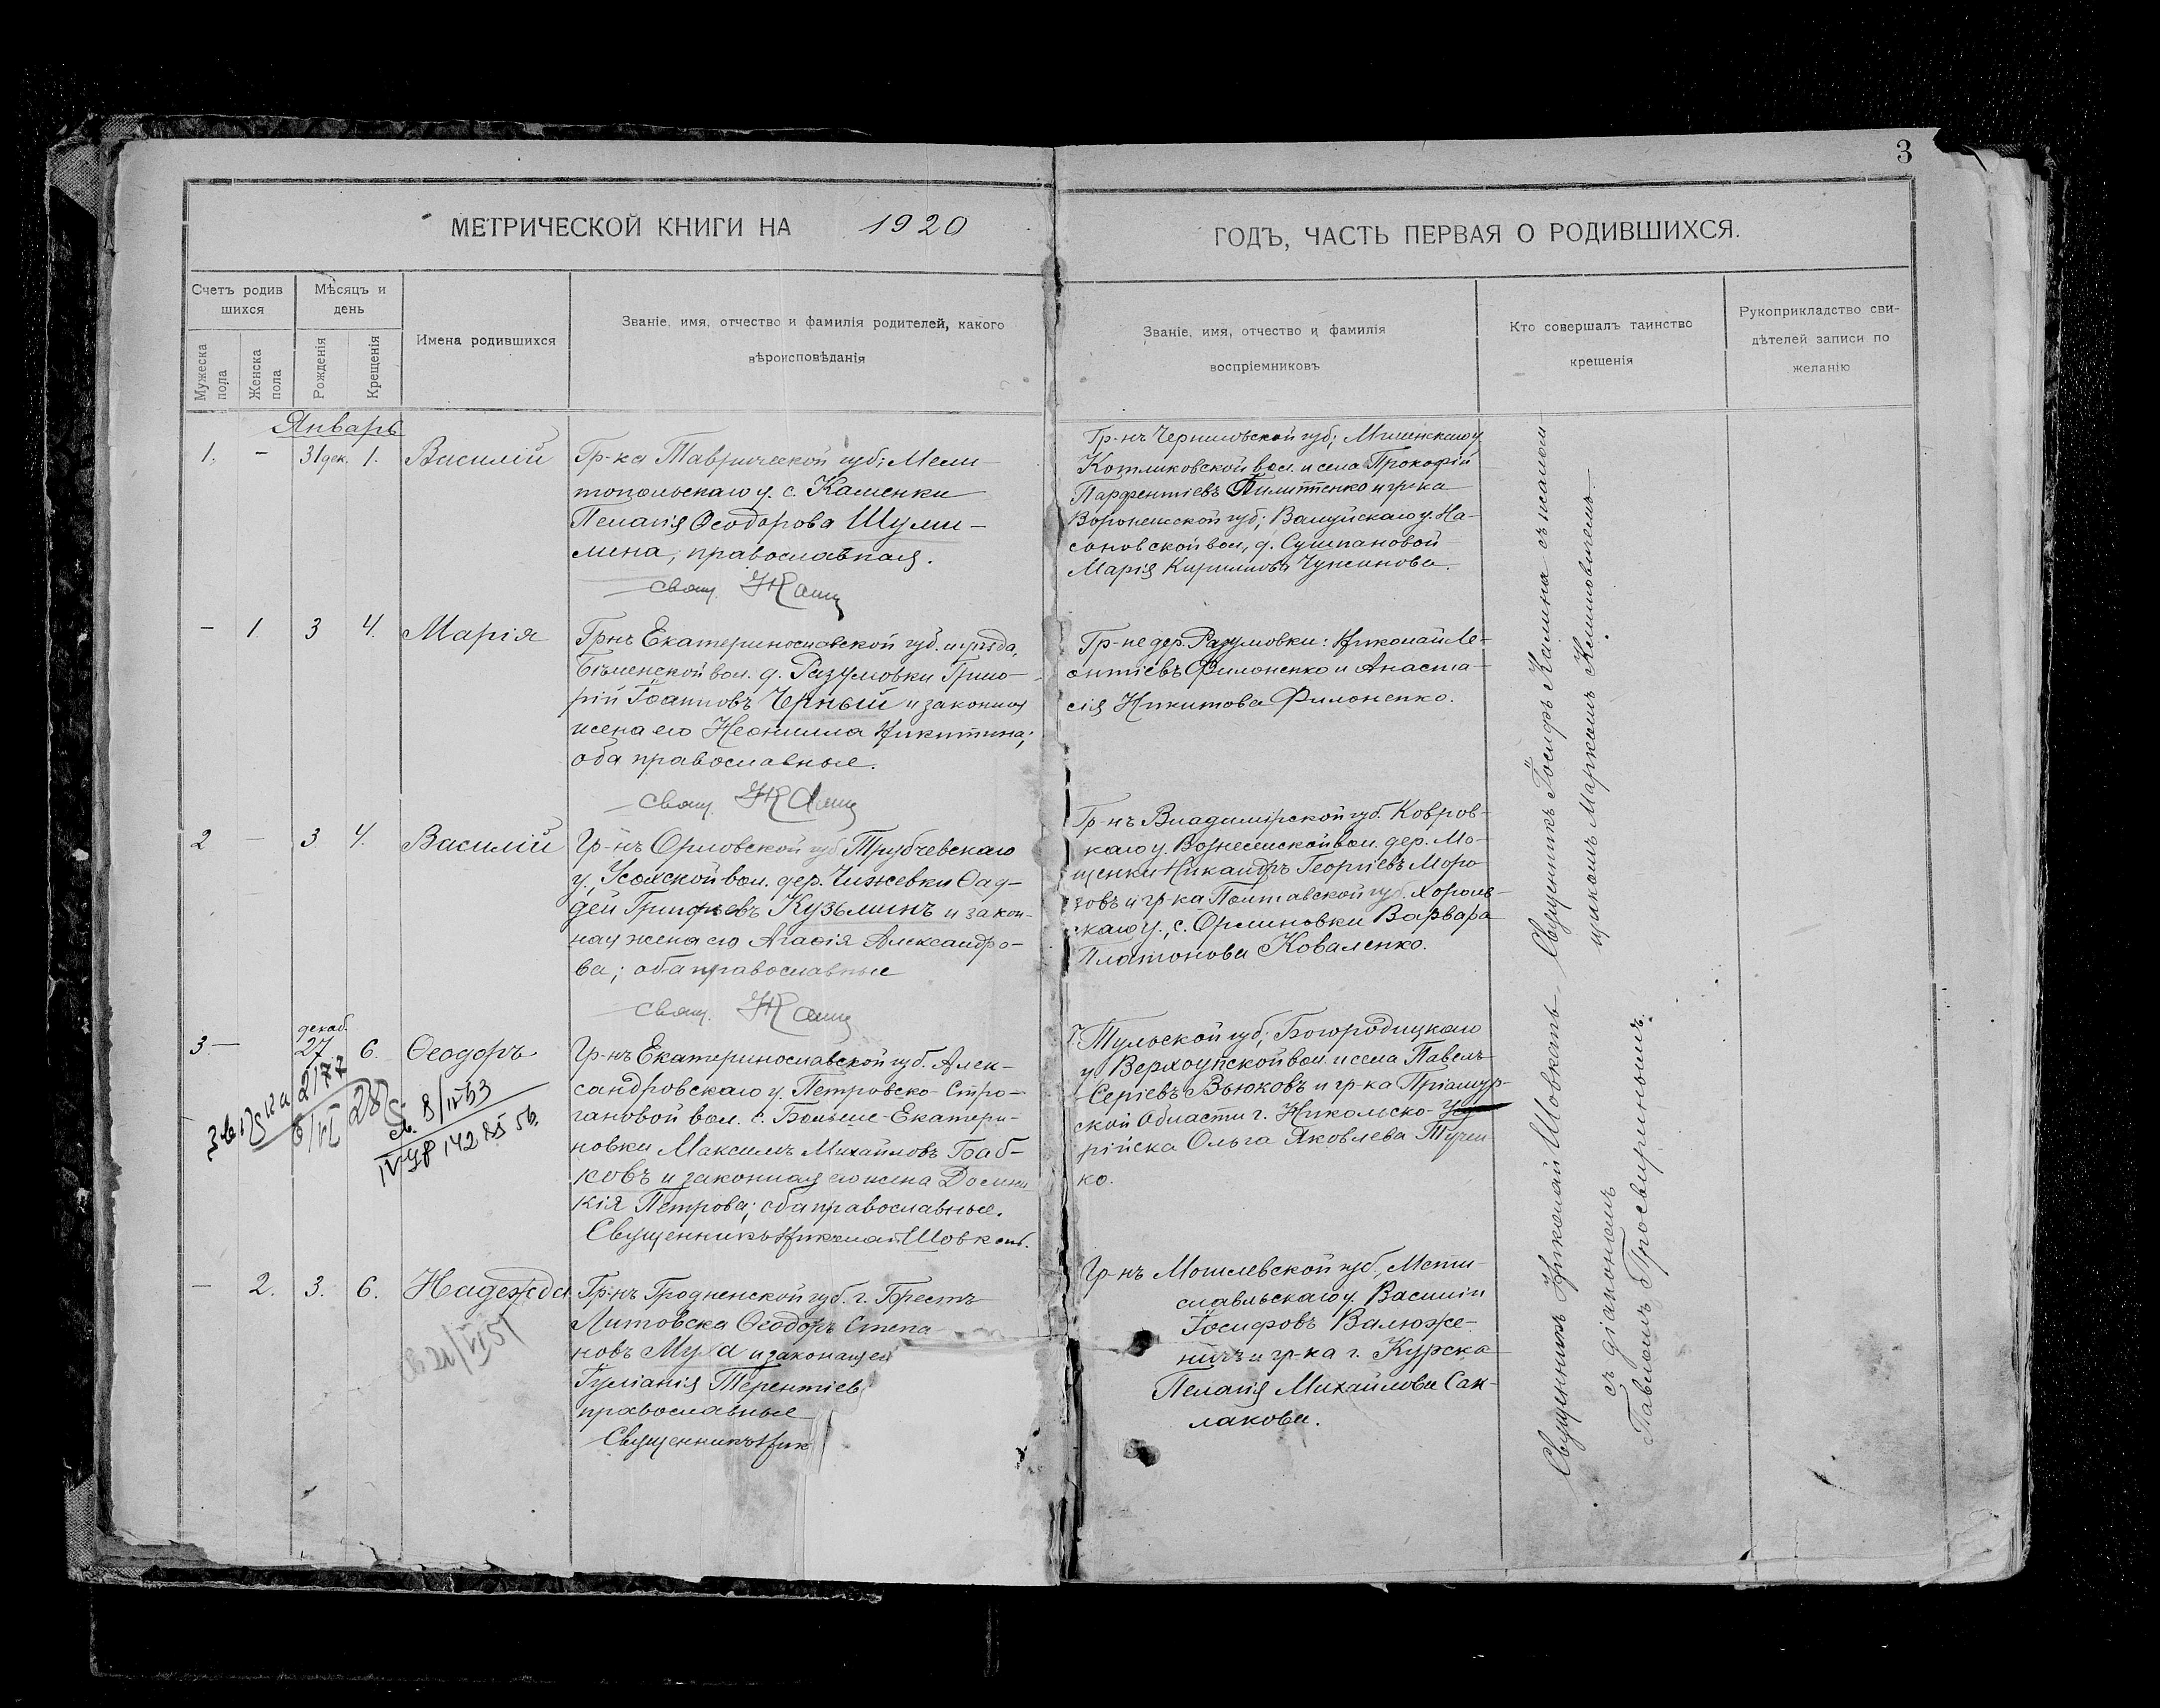 3
МЕТРИЧЕСКОЙ КНИГИ НА 1920
ГОДЪ, ЧАСТЬ ПЕРВАЯ О РОДИВШИХСЯ.
Счетъ родив
шихся
Мужеска
пола
Женска
пола
Мѣсяцъ и
день
Рожденія
Крещенія
Имена родившихся
Званіе, имя, отчество и фамилія родителей, какого
вѣроисповѣданія
Званіе, имя, отчество и фамилія
воспріемниковъ
Кто совершалъ таинство
крещенія
Рукоприкладство сви-
дѣтелей записи по
желанію
Январь
1. - 31 дек. 1. Василій
Гр-ка Таврической губ; Мели-
топольскаго у. с. Каменки
Пелагія Ѳеодорова Шули-
мина, православная.
свящ.
Гр-нъ Черниговской губ;
Котликовской вол. и села Прокофій
Парфентіевъ Пилипенко и гр-ка
Воронежской губ; Валуйскаго у. На-
соновской вол, д.
Марія Кириллова
- 1. 3 4. Марія
Гр-нъ Екатеринославской губ. и уѣзда,
Бѣленской вол. д. Разумовки Григо-
рій Іоанновъ Черный и законная
жена его Неонилла Никитина;
оба православные.
свящ.
Гр-не дер. Разумовки: Николай Ле-
онтіевъ Филоненко и Анаста-
сія Никитова Филоненко.
2 - 3 4. Василій
Гр-нъ Орловской губ. Трубчевскаго
у, Усохской вол. дер. Чижевки Ѳад-
дей Кузьминъ и закон-
ная жена его Агаѳія Александро-
ва; оба православные
свящ.
Гр-нъ Владимірской губ. Ковров-
скаго у. Вознесенской вол. дер. Мо-
щенки Никандръ Георгіевъ Моро
зовъ и гр-ка Полтавской губ. Хороль-
скаго у., с. Варвара
Платонова Коваленко.
3. - декаб. 27 6. Ѳеодоръ
Гр-нъ Екатеринославской губ. Алек-
сандровскаго у. Петровско-Стро-
гановой вол. с. Больше-Екатери-
новки Максимъ Михайловъ Баб-
ковъ и законная его жена Домни
кія Петрова; оба православные.
Священникъ Николай Шовкапъ.
Тульской губ; Богородицкаго
у Верхоупской вол. и села Павелъ
Сергіевъ Вьюковъ и гр-ка Пріамур-
ской Области г. Никольско-Уссу
рійска Ольга Яковлева
ко.
св. 8/IV 53
- 2. 3. 6. Надежда
Гр-нъ Гродненской губ. г. Брестъ
Литовска Ѳеодоръ Степа
новъ Муха и законащея
Іуліанія Терентіев
православные
Священникъ Ник
св 21/VI 51
Гр-нъ Могилевской губ, Мсти-
славльскаго у. Василій
Іосифовъ Валюже-
ничъ и гр-ка г. Курска
Пелагія Михайлова Сак-
лакова.
Священникъ Іосифъ Калина съ псалом
щикомъ Маркомъ Климовичемъ.
Священникъ Николай Шовкапъ
съ діакономъ
Павломъ Просвирнинымъ.